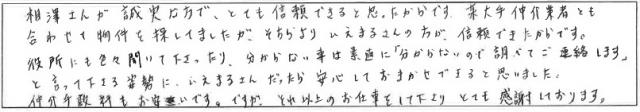 相澤さんが誠実な方で、とても信頼できると思ったからです。某大手仲介業者とも
合わせて物件を探してましたが そちらより いえまるさんの方が、信頼できたからです。
役所にも色々聞いて下さったり、分からない事は素直に「分からないので調べてご連絡します」
と言って下さる姿勢に、いえまるさんだったら安心しておまかせできると思いました。
仲介手数料もお安いです。ですが、それ以上のお仕事をして下さりとても感謝しております。